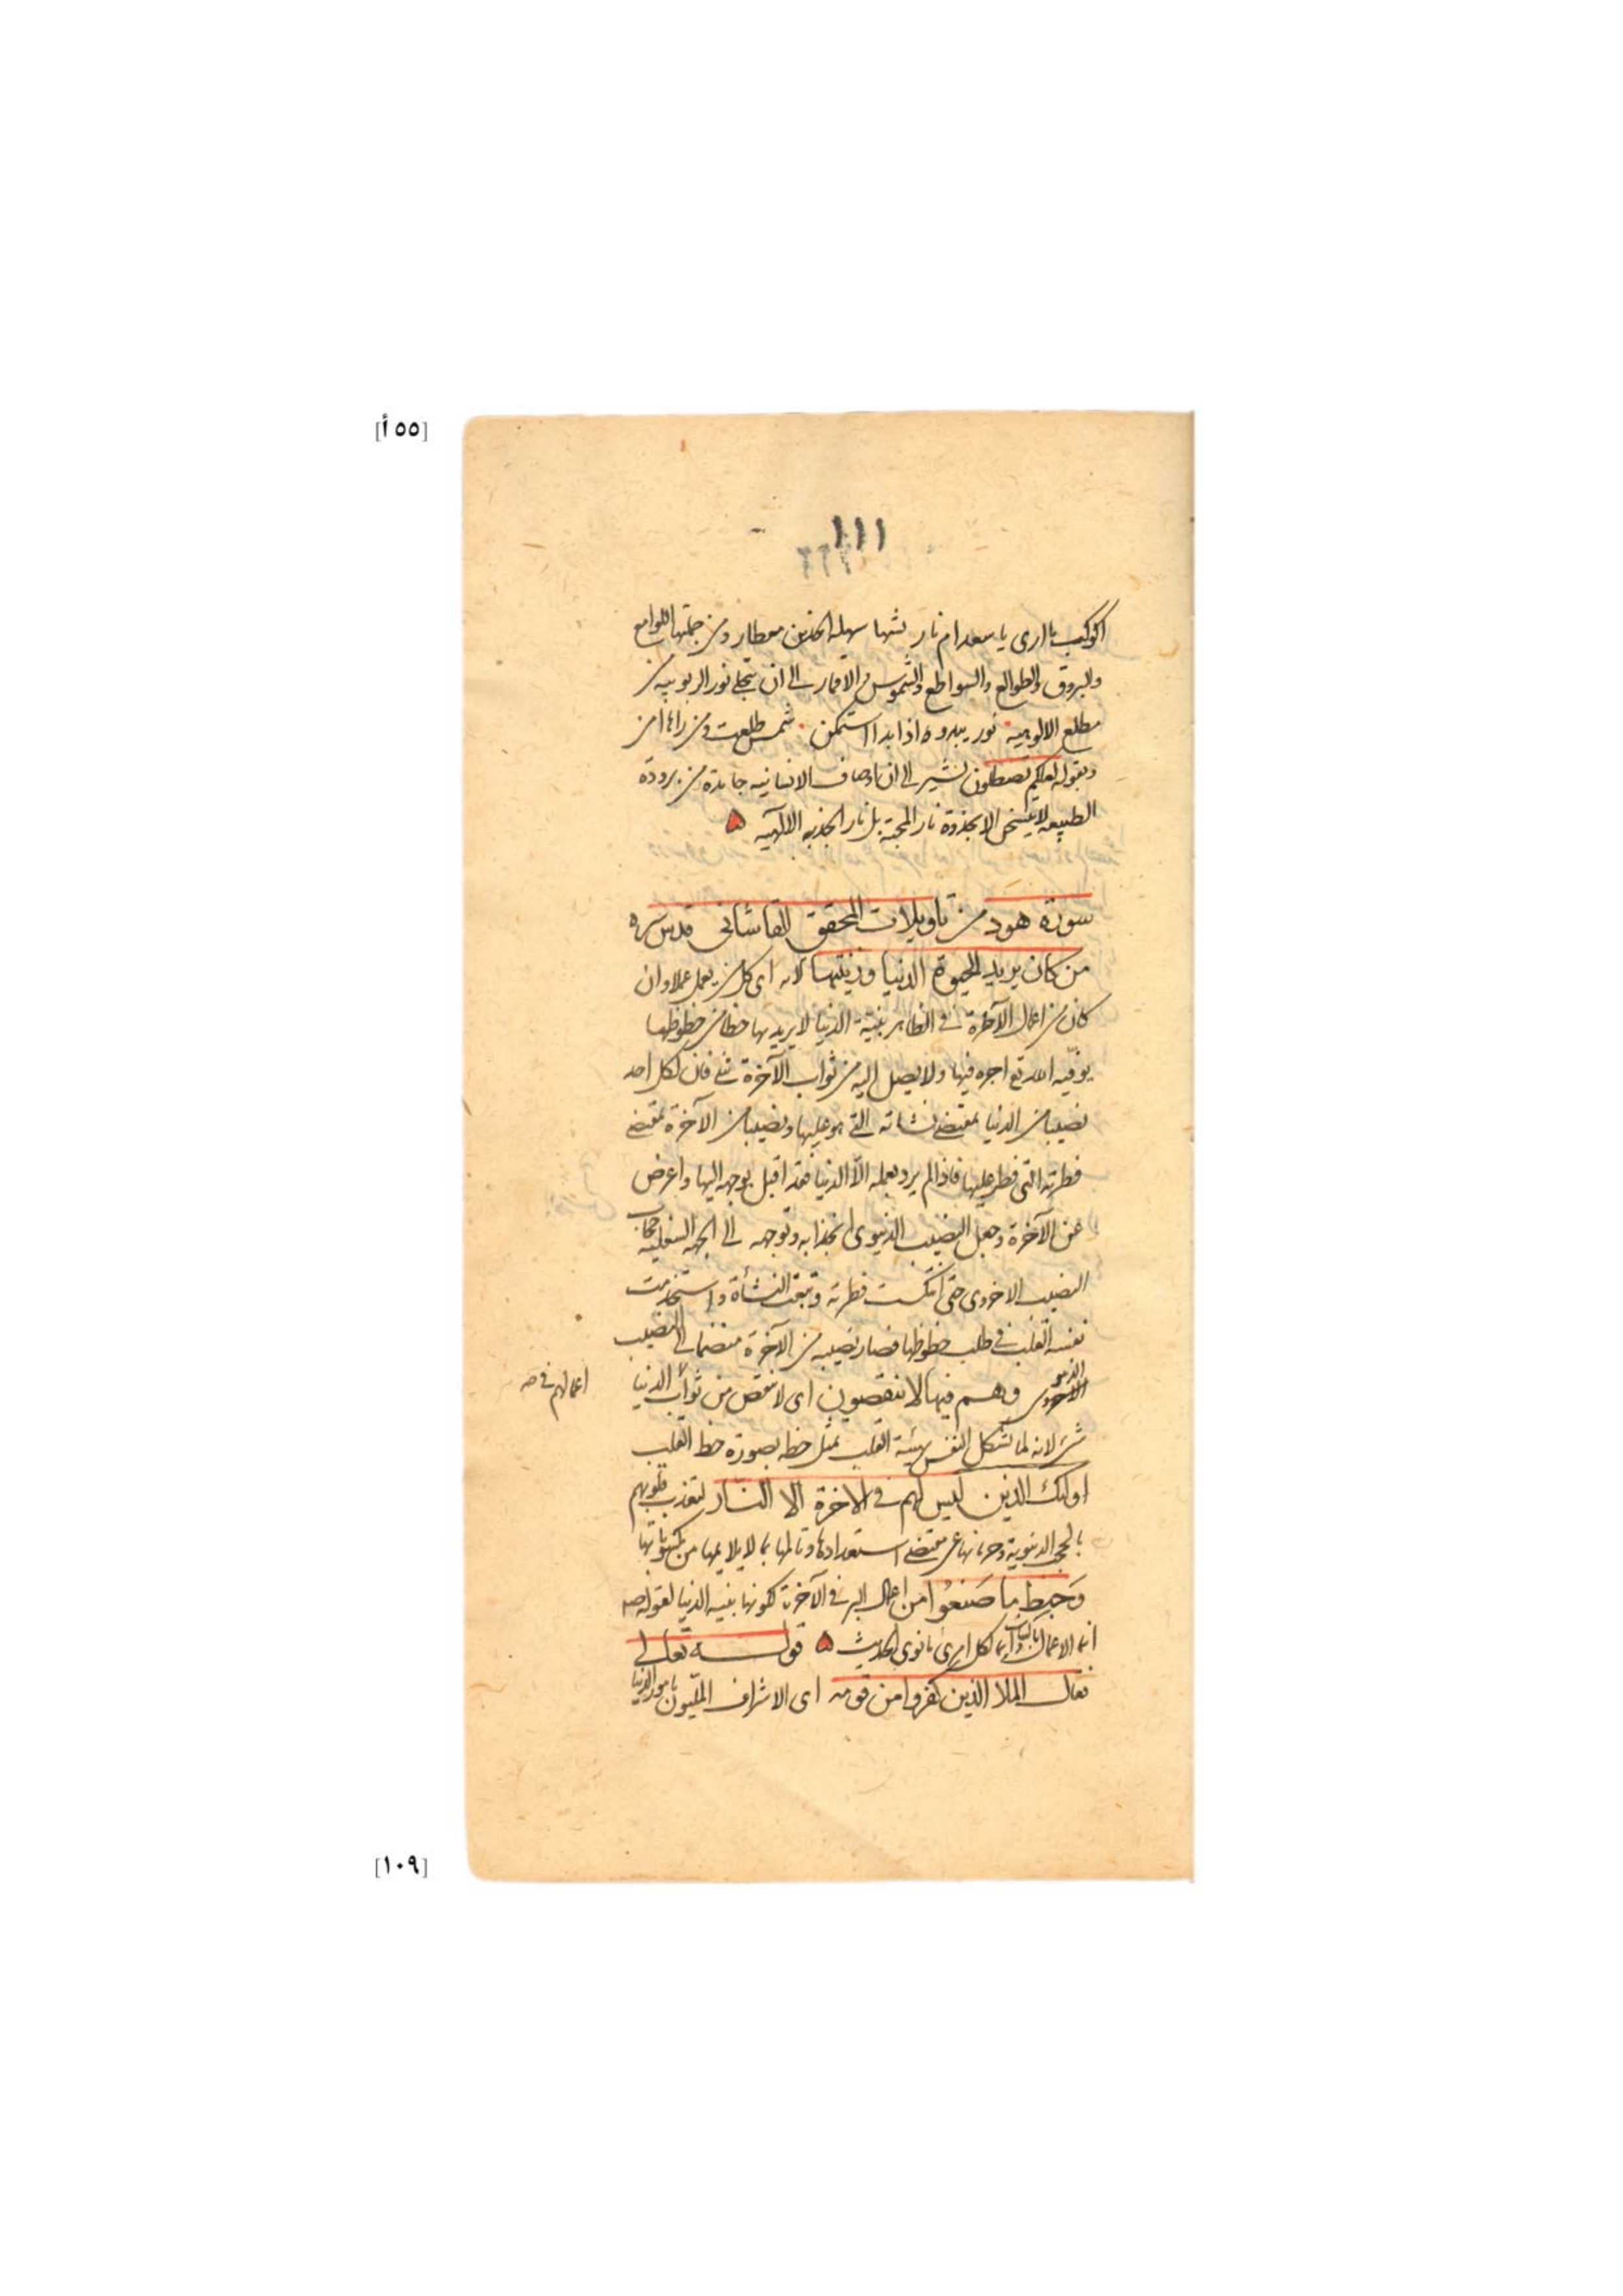 [٥٥ أ]
١١١
اكوكب ما ارى يا سعد ام نار تشبها سهلة الخدين معطار ومن جملتها اللوامع
والبروق والطوالع والسواطع والشموس والاقمار الى ان تتجلى نور الربوبيه من
مطلع الالوهيه نور يبدو اذا بدا استمكن شمس طلعت ومن راها امن
وبقوله لعلكم تصطلون يشير الى ان اوصاف الانسانيه جامدة من برودة
الطبيعه لا يتسخن الا بجذوة نار المحبة بل نار الجذبه الالهيه
سورة هود من تاويلات المحقق القاشانى قدس سره
من كان يريد الحيوة الدنيا وزينتها الايه اى كل من يعمل عملا وان
كان من اعمال الآخرة فى الظاهر بنية الدنيا لا يريد بها حظا من حظوظها
يوفيه الله تع اجره فيها ولا يصل اليه من ثواب الآخرة شئ فان لكل احد
نصيبا من الدنيا بمقتضى نشاته التى هو عليها ونصيبا من الآخرة بمقتضى
فطرته التى فطر عليها فاذا لم يرد بعمله الا الدنيا فقد اقبل بوجهه اليها واعرض
عن الآخرة وجعل النصيب الدنيوى بانجذابه وتوجهه الى الجهه السفليه حجاب
النصيب الاخروى حتى انتكست فطرته وتبعت النشأة واستخدمت
نفسه القلب فى طلب حظوظها فصار نصيبه من الآخرة منضما الى النصيب
الدنيوى وهم فيها لا ينقصون اى لا ينقص من ثواب الدنيا
اعمالهم فى صح
شئ لانه لما تشكل النفس بهيئة القلب تمثل حظه بصورة حظ القلب
اولئك الذين ليس لهم فى الاخرة الا النار لتعذب قلوبهم
بالحجب الدنيوية وحرمانها عن مقتضى استعدادها وتالمها بما لا يلايمها من مكسوباتها
وحبط ما صنعوا من اعمال البر فى الآخرة لكونها بنيه الدنيا لقوله صم
انما الاعمال بالنيات وانما لكل امرئ ما نوى الحديث قوله تعالى
فقال الملا الذين كفروا من قومه اى الاشراف المليون بامور الدنيا
[١٠٩]